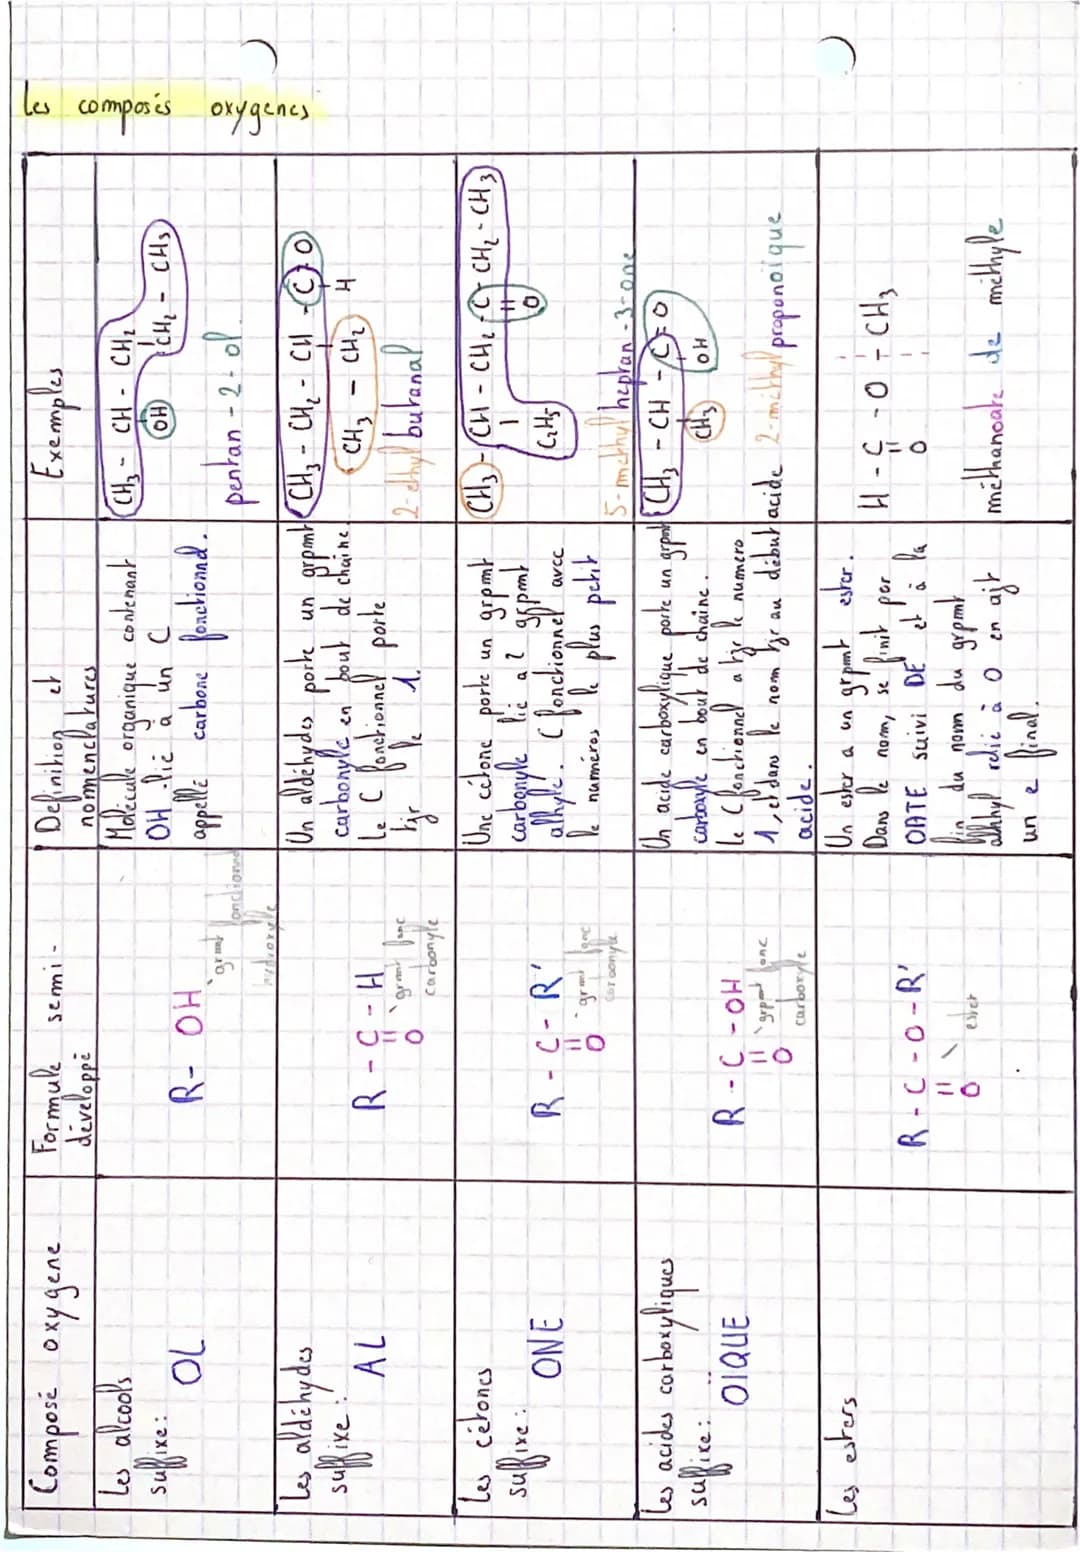 Les composés oxygenes
Composé oxygene
Formule semi-
développé
Définition et
nomenclatures
Exemples
Les alcools
suffixe :
OL
R - OH
grmt fonctionnel
hydroxyle
Molécule organique contenant
OH lié à un C
appellé carbone fonctionnel.
CH3 - CH - CH2
OH CH2 - CH3
pentan - 2 - ol.
Les aldéhydes
suffixe :
AL
R - C - H
O
grmt fonc
carbonyle
Un aldéhydes porte un grpmt
carbonyle en bout de chaîne.
Le C fonctionnel porte
tjr le 1.
CH3 - CH2 - CH - C = O
CH3 - CH2 H
2-ethyl butanal
Les cétones
suffixe :
ONE
R - C - R'
O
grmt fonc
carbonyle
Une cétone porte un grpmt
carbonyle lié a 2 grpmt
alkyle. C fonctionnel avec
le numéros le plus petit
CH3 - CH - CH2 - C - CH2 - CH3
C2H5 O
5-methyl heptan-3-one
Les acides carboxyliques
suffixe :
OÏQUE
R - C - OH
O
grpmt fonc
carboxyle
Un acide carboxylique porte un grpmt
carboxyle en bout de chaîne.
Le C fonctionnel a tjr le numero
1, et dans le nom tjr au début
acide.
CH3 - CH - C = O
CH3 OH
acide 2-méthyl proponoïque
Les esters
R - C - O - R'
O
ester
Un ester a un grpmt ester.
Dans le nom, se finit par
OATE suivi DE et à la
fin du nom du grpmt
relié à O en ajt
un e final.
H - C - O - CH3
O
méthanoate de méthyle